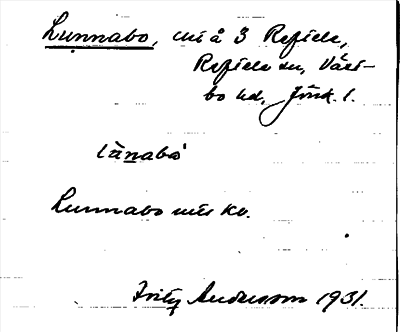 Lunnabo, uti å 3 Reftele,
Reftele sn, Väst-
bo hd, Jönk. l.
lùnabó
Lunnabo uti kv.
Fritz Andersson 1931.